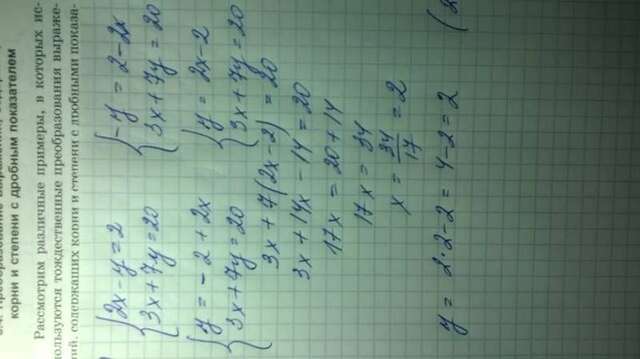 корни и степени с дробным показателем
Рассмотрим различные примеры, в которых ис-
пользуются тождественные преобразования выраже-
ний, содержащих корни и степени с любыми показа-
{2x-y=2
{3x+7y=20
{-y = 2-2x
{3x+7y=20
{y = -2+2x
{3x+7y=20
{y = 2x-2
{3x+7y=20
3x+7(2x-2) = 20
3x+14x-14 = 20
17x = 20+14
17x = 34
x = 34/17 = 2
y = 2·2-2 = 4-2 = 2